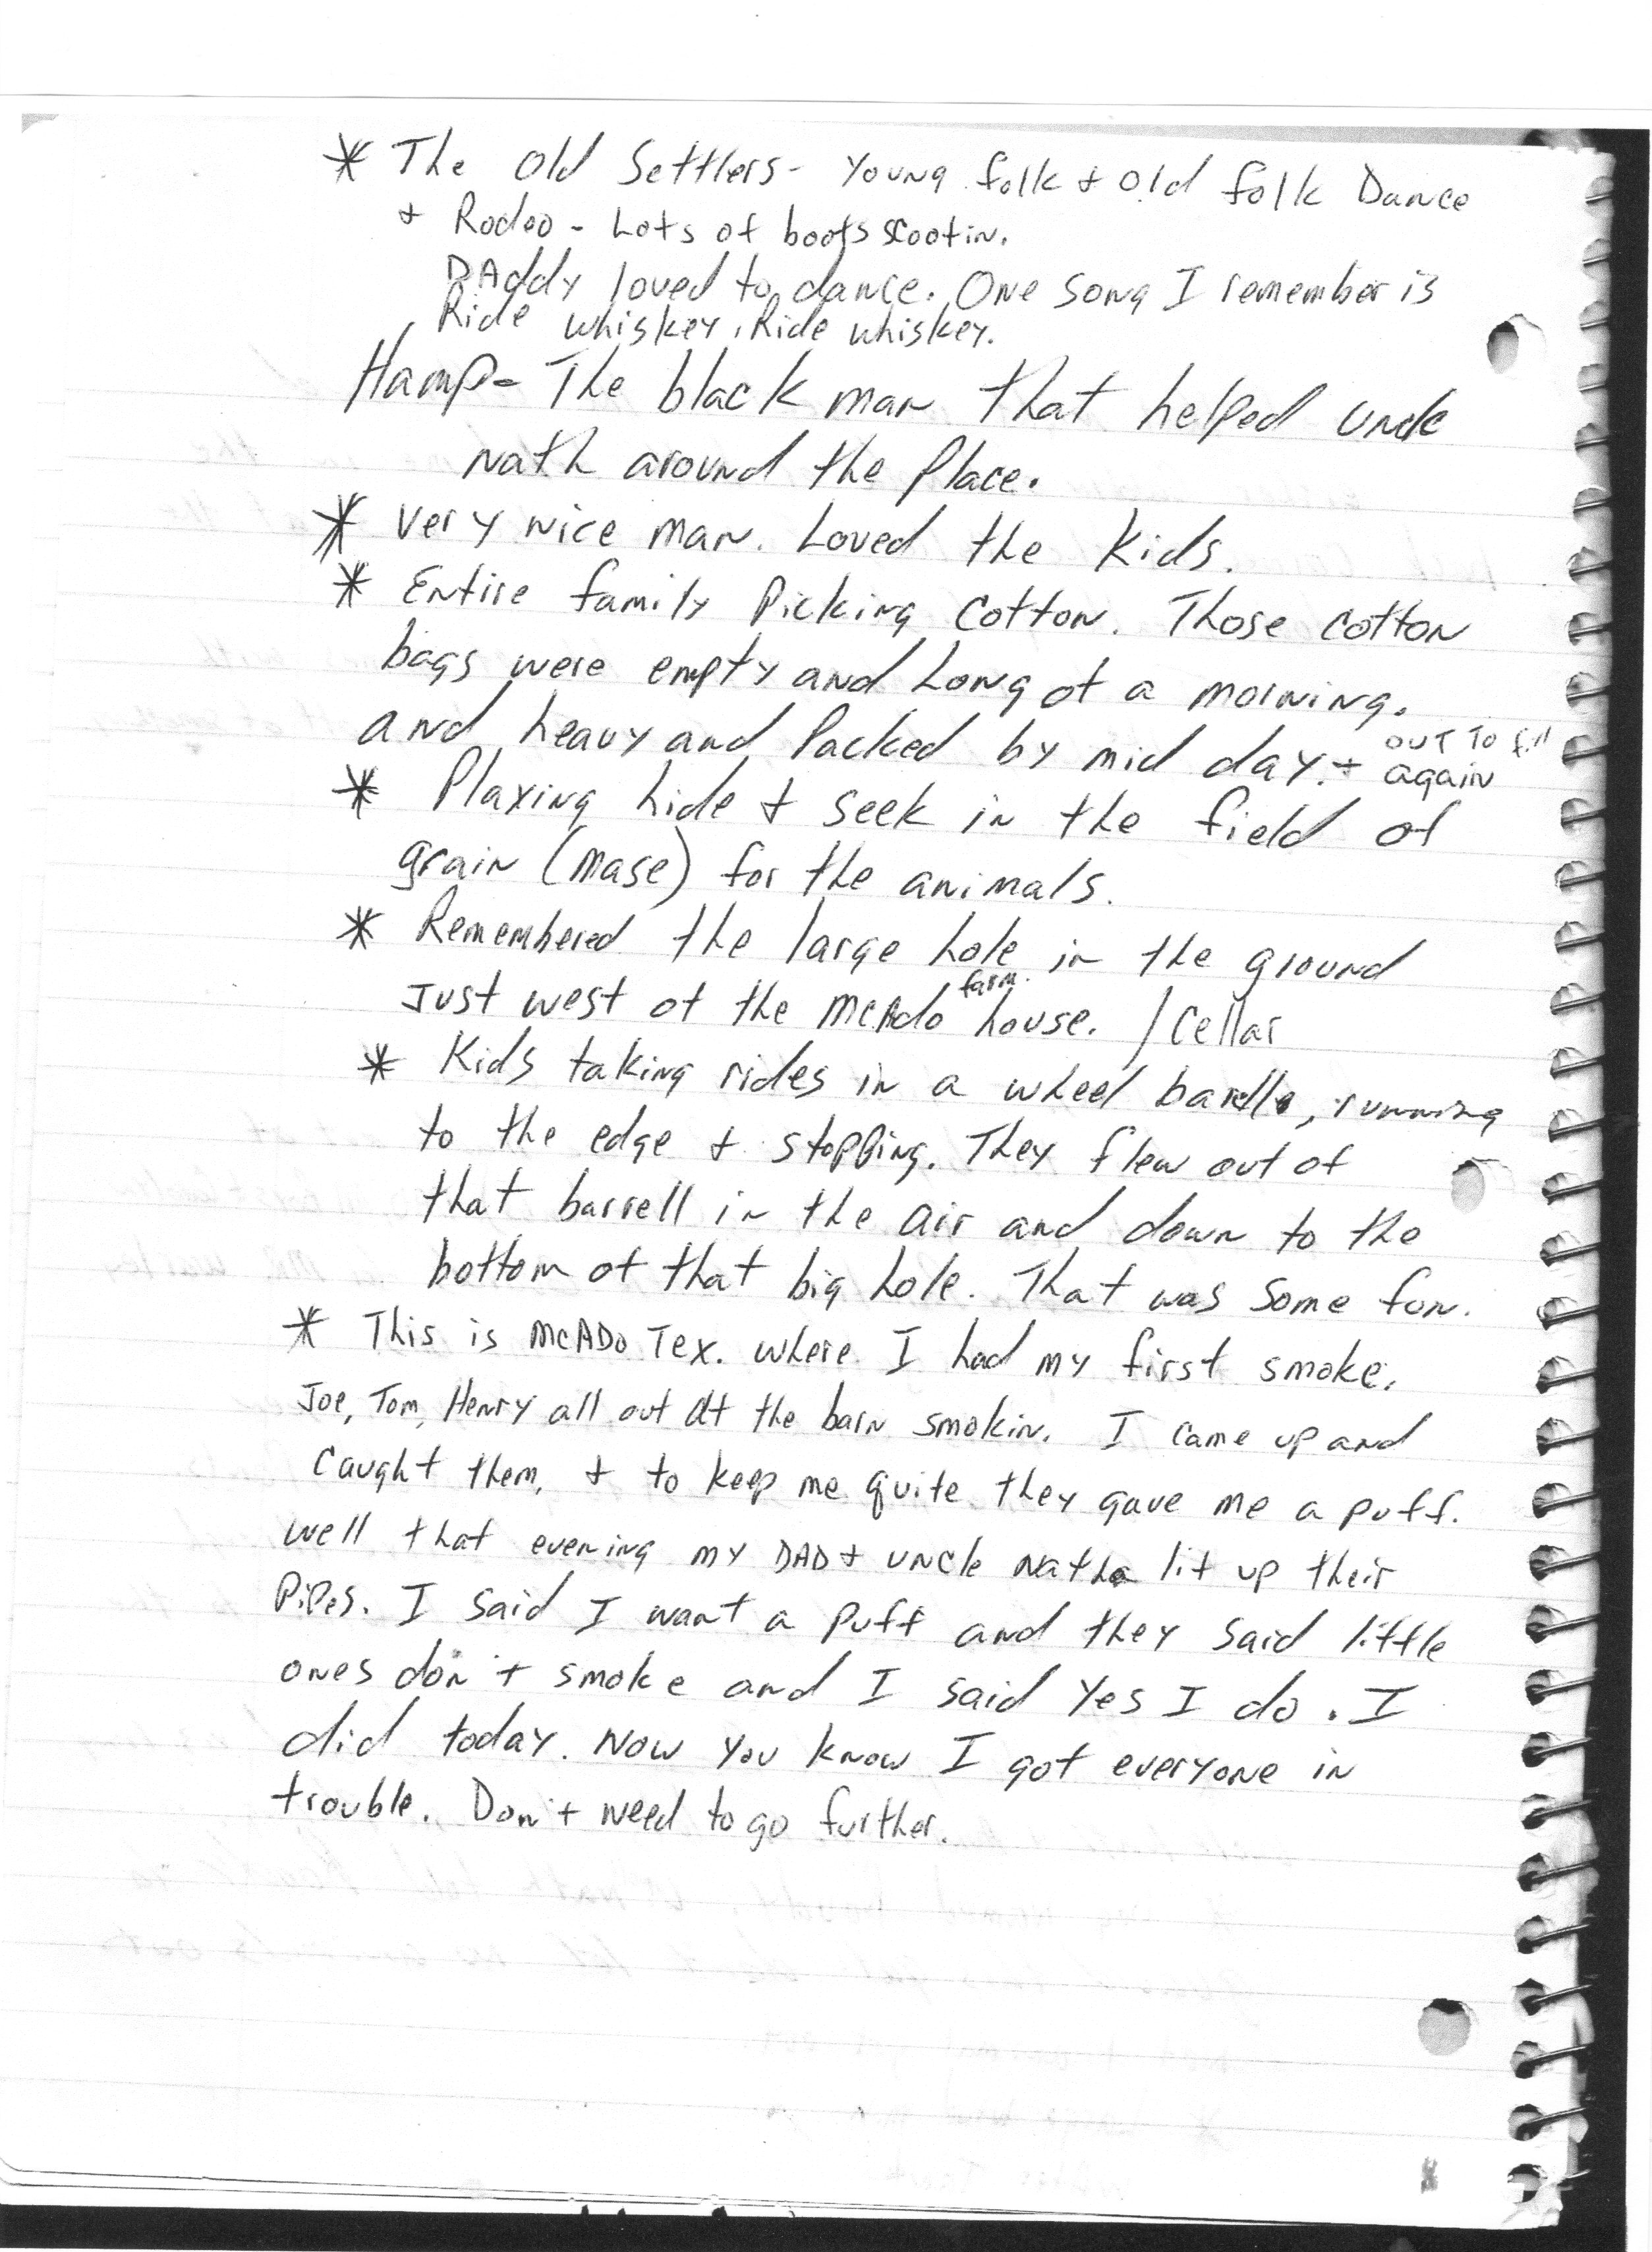 * The Old Settlers - Young folk + Old folk Dance
+ Rodeo - Lots of boots scootin.
DAddy loved to dance. One song I remember is
Ride whiskey, Ride whiskey.
Hamp - The black man that helped Uncle
Nath around the Place.
* Very nice man. Loved the Kids.
* Entire family Picking cotton. Those cotton
bags were empty and Long of a morning.
and heavy and Packed by mid day. + OUT TO fill
again
* Playing hide + seek in the field of
grain (mase) for the animals.
* Remembered the large hole in the ground
Just west of the McAdo farm house. / Cellar
* Kids taking rides in a wheel barell, running
to the edge + stopping. They flew out of
that barrell in the air and down to the
bottom of that big hole. That was some fun.
* This is McADo Tex. where I had my first smoke.
Joe, Tom, Henry all out at the barn smokin. I came up and
caught them, + to keep me quite they gave me a puff.
Well that evening my DAD + UNCle Nath lit up their
PiPes. I said I want a puff and they said little
ones don't smoke and I said Yes I do. I
did today. Now you know I got everyone in
trouble. Don't need to go further.